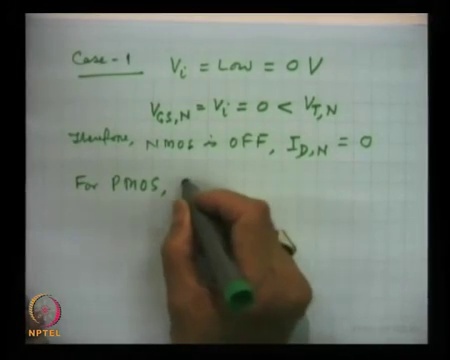 Case-1 Vi = Low = 0 V
VGS,N = Vi = 0 < VT,N
Therefore, NMOS is OFF, ID,N = 0
For PMOS,
NPTEL